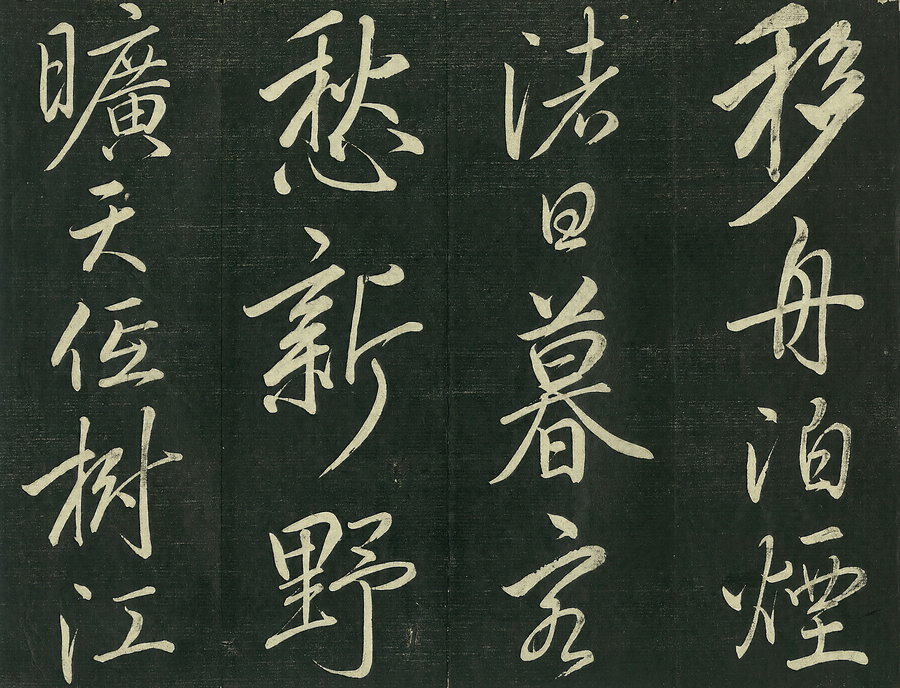 移舟泊煙
渚日暮客
愁新野
曠天低樹江